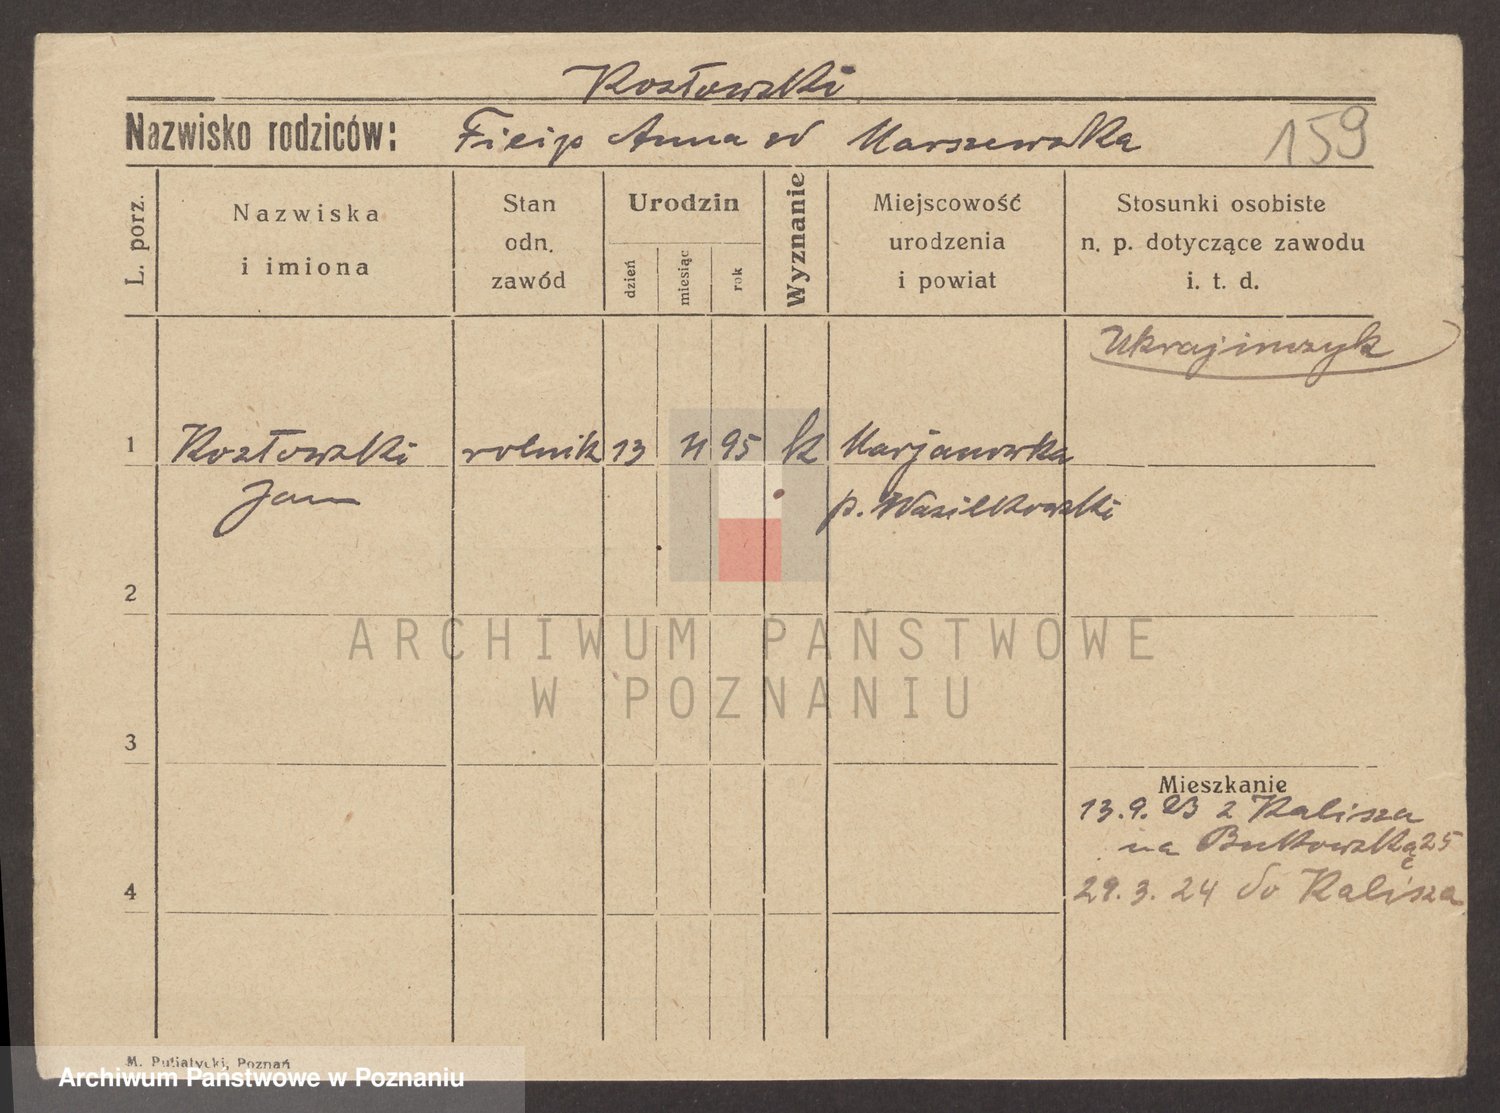 Kozłowski
Nazwisko rodziców: Filip Anna od Marszewska
159
L. porz.
Nazwiska
i imiona
Stan
odn.
zawód
Urodzin
dzień
miesiąc
rok
Wyznanie
Miejscowość
urodzenia
i powiat
Stosunki osobiste
n. p. dotyczące zawodu
i. t. d.
Ukrajinczyk
1 Kozłowski rolnik 13 95 k Marjanowka
Jan p. Wasilkowski
2
ARCHIWUM PAŃSTWOWE
W POZNANIU
3
Mieszkanie
13.9.23 z Kalisza
na Bukowską 25
4
29.3.24 do Kalisza
M. Putiatycki, Poznań
Archiwum Państwowe w Poznaniu